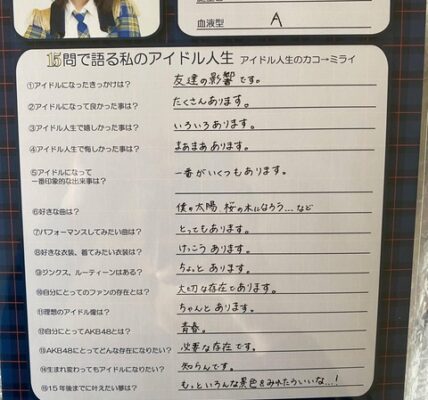 血液型 A
15問で語る私のアイドル人生 アイドル人生のカコ→ミライ
①アイドルになったきっかけは? 友達の影響です。
②アイドルになって良かった事は? たくさんあります。
③アイドル人生で嬉しかった事は? いろいろあります。
④アイドル人生で悔しかった事は? まあまああります。
⑤アイドルになって
一番印象的な出来事は? 一番がいくつもあります。
⑥好きな曲は? 僕の太陽、桜の木になろう…など
⑦パフォーマンスしてみたい曲は? とってもあります。
⑧好きな衣装、着てみたい衣装は? けっこうあります。
⑨ジンクス、ルーティーンはある? ちょっとあります。
⑩自分にとってのファンの存在とは? 大切な存在であります。
⑪理想のアイドル像は? ちゃんとあります。
⑫自分にとってAKB48とは? 青春。
⑬AKB48にとってどんな存在になりたい? 必要な存在です。
⑭生まれ変わってもアイドルになりたい? 知らんです。
⑮15年後までに叶えたい夢は? もっといろんな景色をみれたらいいな…!